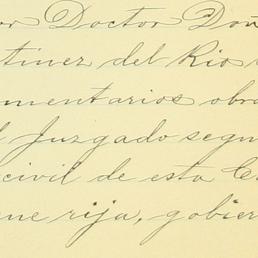 or Doctor Don
tinez del Rio
mentarios obra
l Juzgado segun
civil de esta C
ue rija, gobier